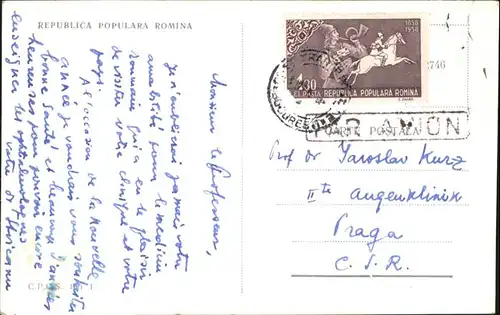 REPUBLICA POPULARA ROMINA
Monsieur le Professeur,
Je n'oublierai jamais votre
amabilité pour le médecin
roumain qui a eu le plaisir
de visiter votre clinique et votre
pays.
A l'occasion de la Nouvelle
année je voudrais vous souhaiter
bonne santé et beaucoup d'années
heureuses pour pouvoir encore
enseigner les ophtalmologues
votre dr
C.P.C.S.
1858
1958
2746
1,30
LEI POSTA REPUBLICA POPULARA ROMINA
BUCURESTI
PAR AVION
CARTE POSTALA
Prof Dr Jaroslav Kurz
IIte Augenklinik
Praga
C. S. R.